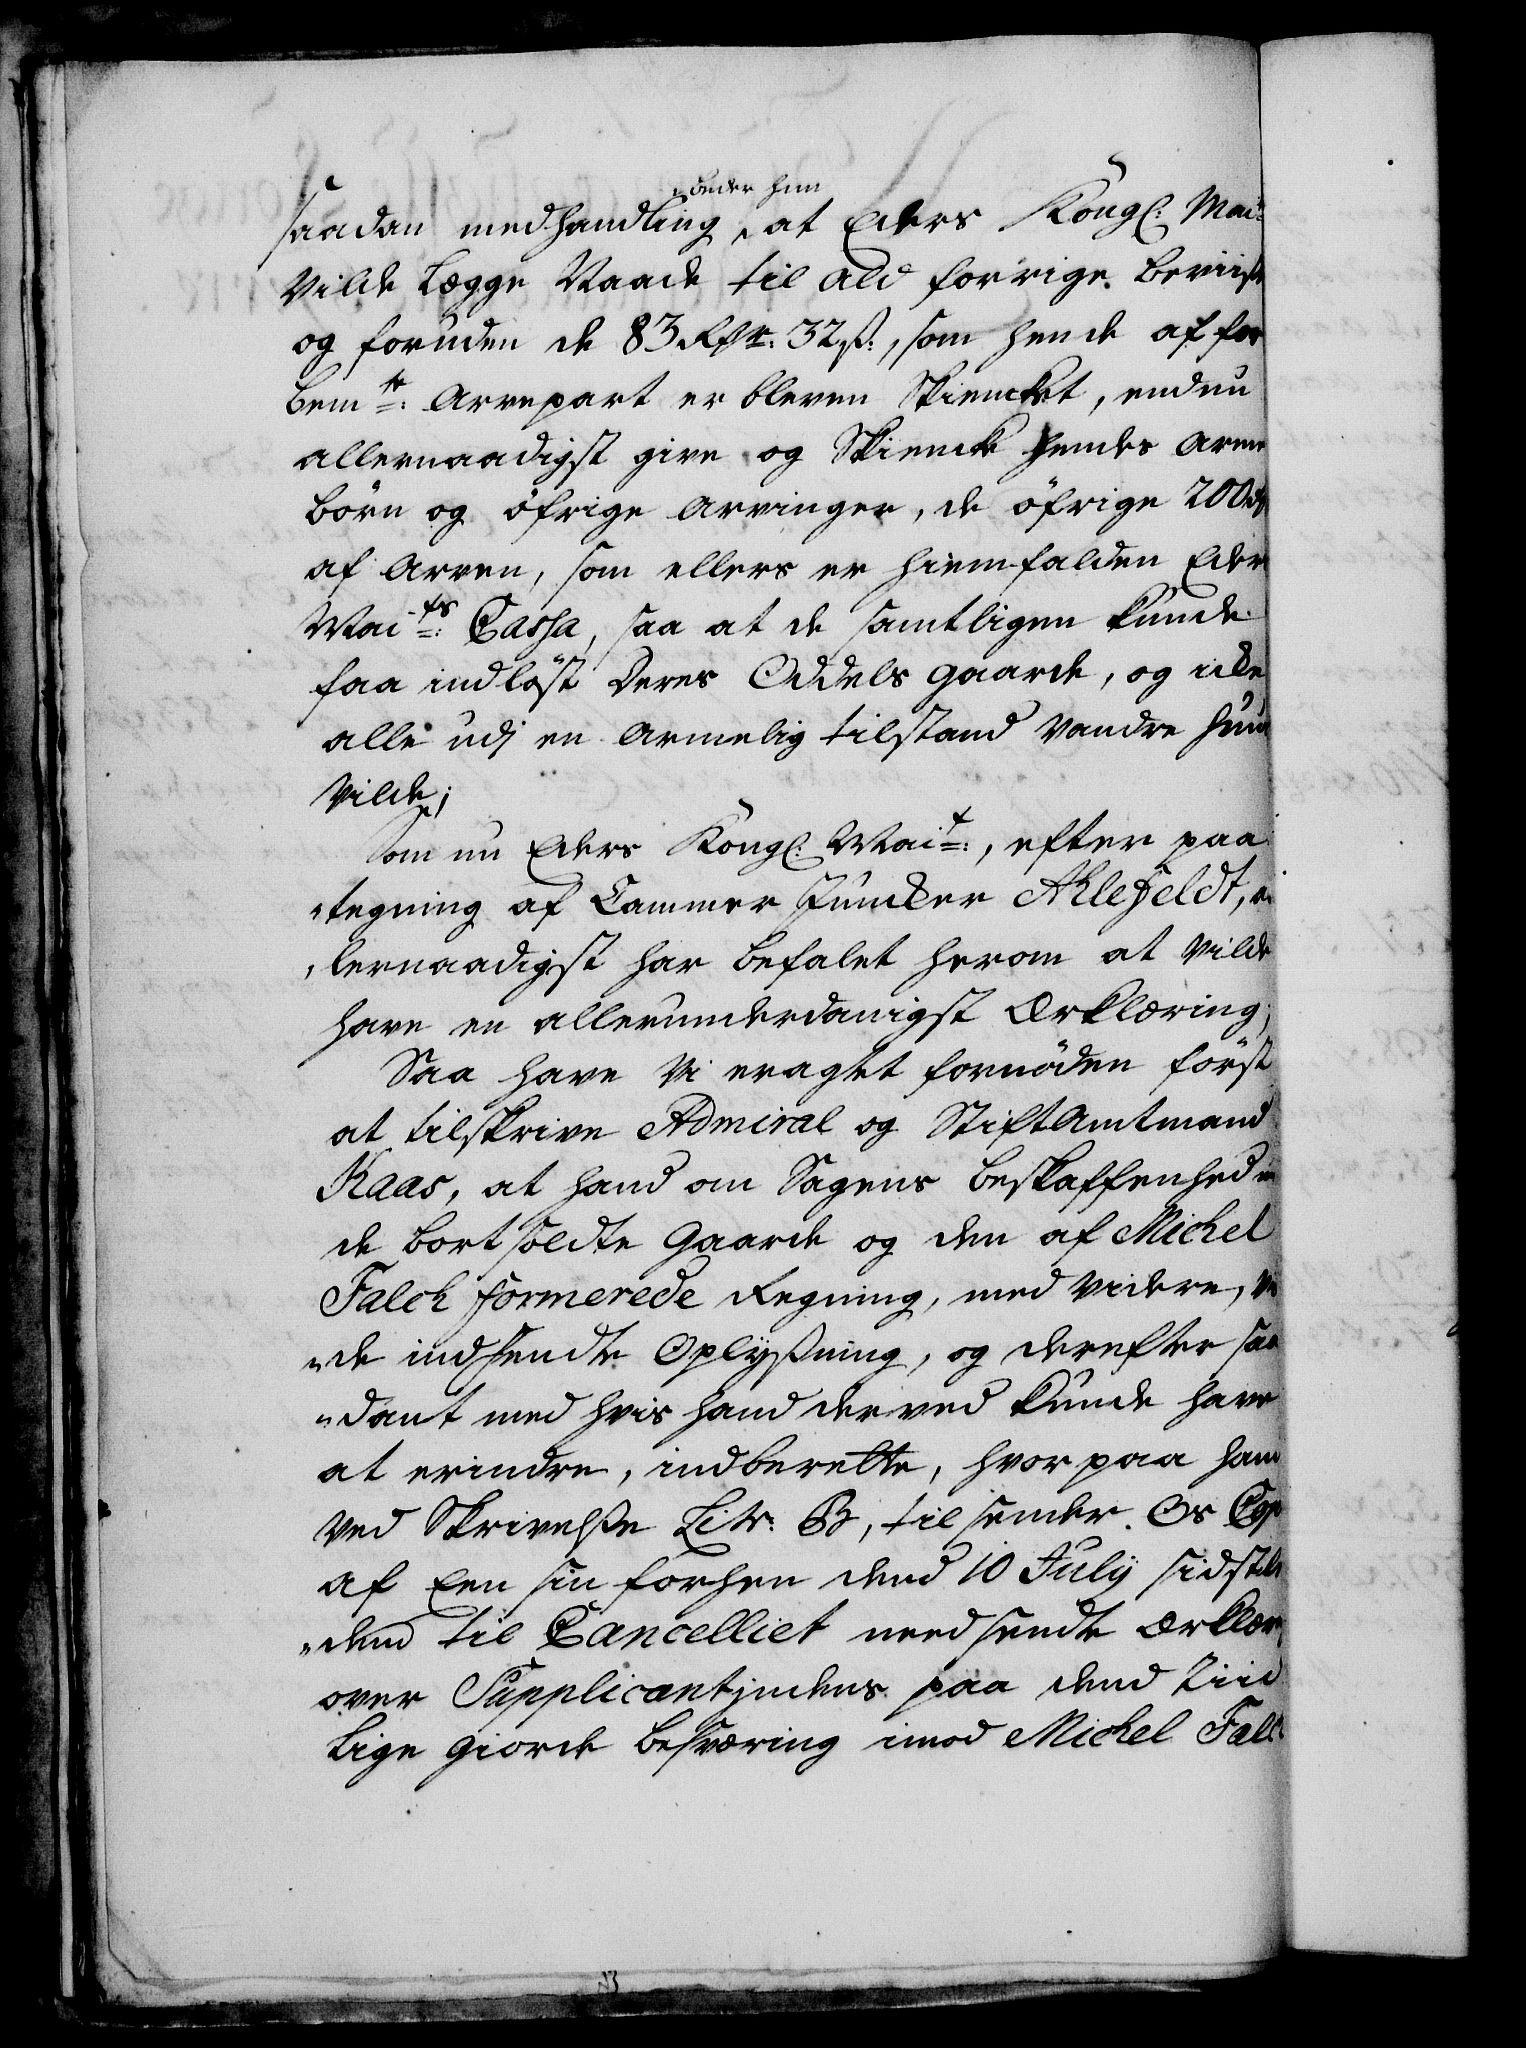 beder hun
saadan medhandling, at Eders Kongl: Mai:
vilde Lægge Naade til ald forrige beviiste
og foruden de 83 Rdr: 32 ß:, som hende af for
bemte: Arvepart er bleven Skiencket, endnu
allernaadigst give og Skiencke hendes arme
børn og öfrige Arvinger, de öfrige 200 rd
af Arven, som ellers er hiemfalden Eders
Maits: Cassa, saa at de samtligen kunde
faa indløst deres Oddels gaarde, og icke
alle udj en armelig tilstand vandre huus
vilde;
Som nu Eders Kongl: Mait:, efter paa
"tegning af Cammer Juncker Ahlefeldt, al
"lernaadigst har befalet herom at vilde
have en allerunderdanigst Erklæring;
Saa have Vi eragtet fornöden först
at tilskrive Admiral og Stiftamtmand
Kaas, at hand om Sagens beskaffenhed m
de bortsoldte Gaarde og den af Michel
Falck formerede Regning, med videre, vi
"de indhendte Oplyßning, og derefter saa
"dant med hvis hand derved kunde have
at erindre, indberette, hvorpaa hand
ved Skrivelße Litr: B, tilsender Os Cop
af Een sin forhen dend 10 July sidstle
"den til Cancelliet needsendte Erklær
over Supplicantindens paa dend Tiid
lige giorde besværing imod Michel Falc